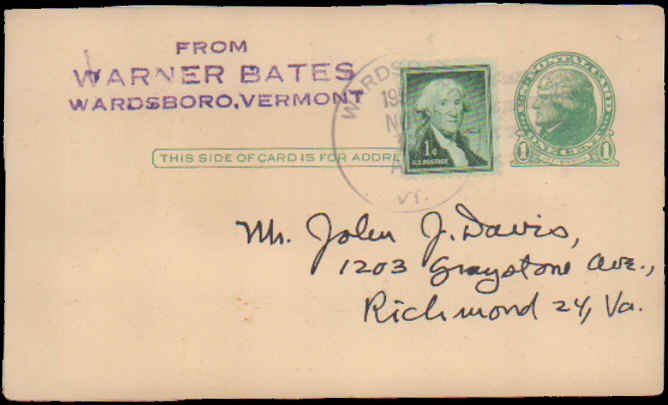 FROM
WARNER BATES
WARDSBORO, VERMONT
U.S. POSTAL CARD
1 ONE CENT 1
WARDSB
19
VT.
1¢
U.S. POSTAGE
THIS SIDE OF CARD IS FOR ADDRE
Mr. John J. Davis,
1203 Graystone Ave.,
Richmond 24, Va.